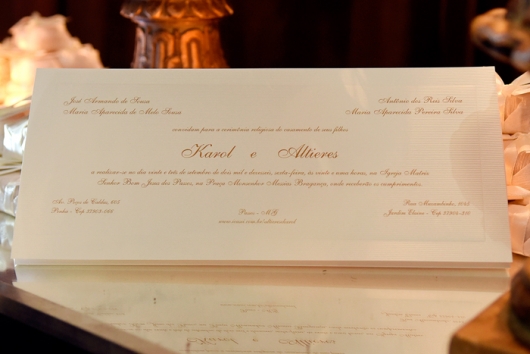 José Armando de Sousa
Maria Aparecida de Melo Sousa
Antônio dos Reis Silva
Maria Aparecida Pereira Silva
convidam para a cerimônia religiosa do casamento de seus filhos
Karol e Altieres
a realizar-se no dia vinte e sete de setembro de dois mil e dezenove, sexta-feira, às vinte e uma horas, na Igreja Matriz
Senhor Bom Jesus dos Passos, na Praça Monsenhor Messias Bragança, onde receberão os cumprimentos.
Av. Poços de Caldas,
Cep
Rua
Cep
Passos - MG